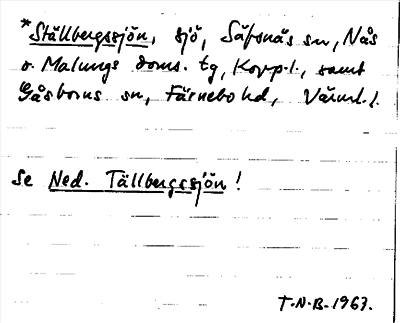 *Ställbergssjön, sjö, Säfsnäs sn, Nås
o. Malungs doms. tg, Kopp.l., samt
Gåsborns sn, Färnebo hd, Värml. l.
Se Ned. Tällbergssjön!
T.N.B. 1963.